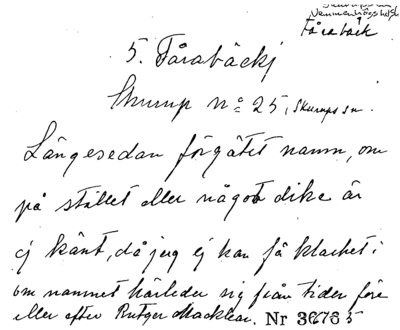 Vemmenhögs hd
Fårabäck
5. Fårabäckj
Skurup no 25, Skurups sn.
Längesedan förgätit namn, om
på stället eller något dike är
ej känt, då jag ej kan få klarhet i
om namnet härleder sig från tider före
eller efter Rutger Macklean. Nr 3676 5